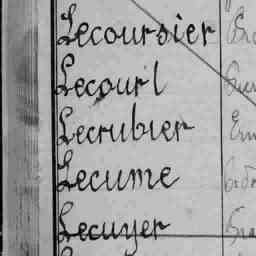 Lecoursier
Lecourl
Lecrubier
Lecume
Lecuyer